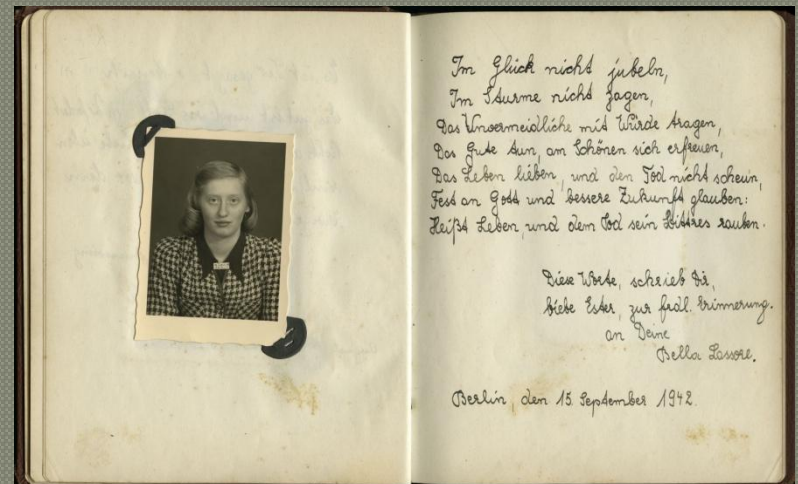 Im Glück nicht jubeln,
Im Sturme nicht zagen,
Das Unvermeidliche mit Würde tragen,
Das Gute tun, am Schönen sich erfreuen,
Das Leben lieben, und den Tod nicht scheun,
Fest an Gott und bessere Zukunft glauben:
Heißt Leben, und dem Tod sein Bittres rauben.
Diese Worte, schrieb Dir,
liebe Ester, zur frdl. Erinnerung.
an Deine
Bella Lassore.
Berlin, den 15. September 1942.